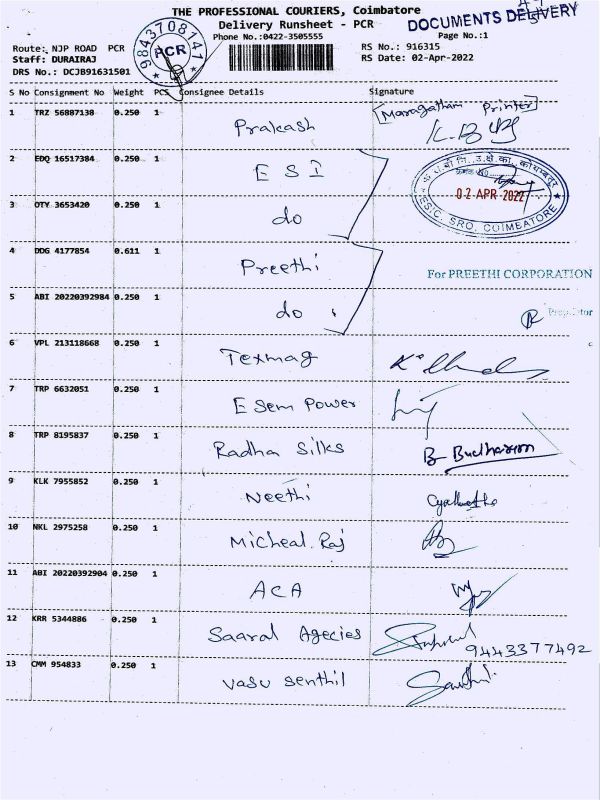 THE PROFESSIONAL COURIERS, Coimbatore
Delivery Runsheet - PCR
DOCUMENTS DELIVERY
Phone No.:0422-3505555
Page No.:1
Route: NJP ROAD PCR
RS No.: 916315
Staff: DURAIRAJ
RS Date: 02-Apr-2022
DRS No.: DCJB91631501
9843708141
PCR
S No Consignment No Weight PCS Consignee Details Signature
1 TRZ 56887138 0.250 1 Prakash Maragatham Printer
2 EDQ 16517384 0.250 1 E S I
02 APR 2022
ESIC, SRO, COIMBATORE
3 OTY 3653420 0.250 1 do
4 DDG 4177854 0.611 1 Preethi For PREETHI CORPORATION
5 ABI 20220392984 0.250 1 do
6 VPL 213118668 0.250 1 Texmag
7 TRP 6632051 0.250 1 E Sem Power
8 TRP 8195837 0.250 1 Radha Silks
9 KLK 7955852 0.250 1 Neethi
10 NKL 2975258 0.250 1 Micheal. Raj
11 ABI 20220392904 0.250 1 ACA
12 KRR 5344886 0.250 1 Saaral Agecies 9443377492
13 CMM 954833 0.250 1 Vasu Senthil